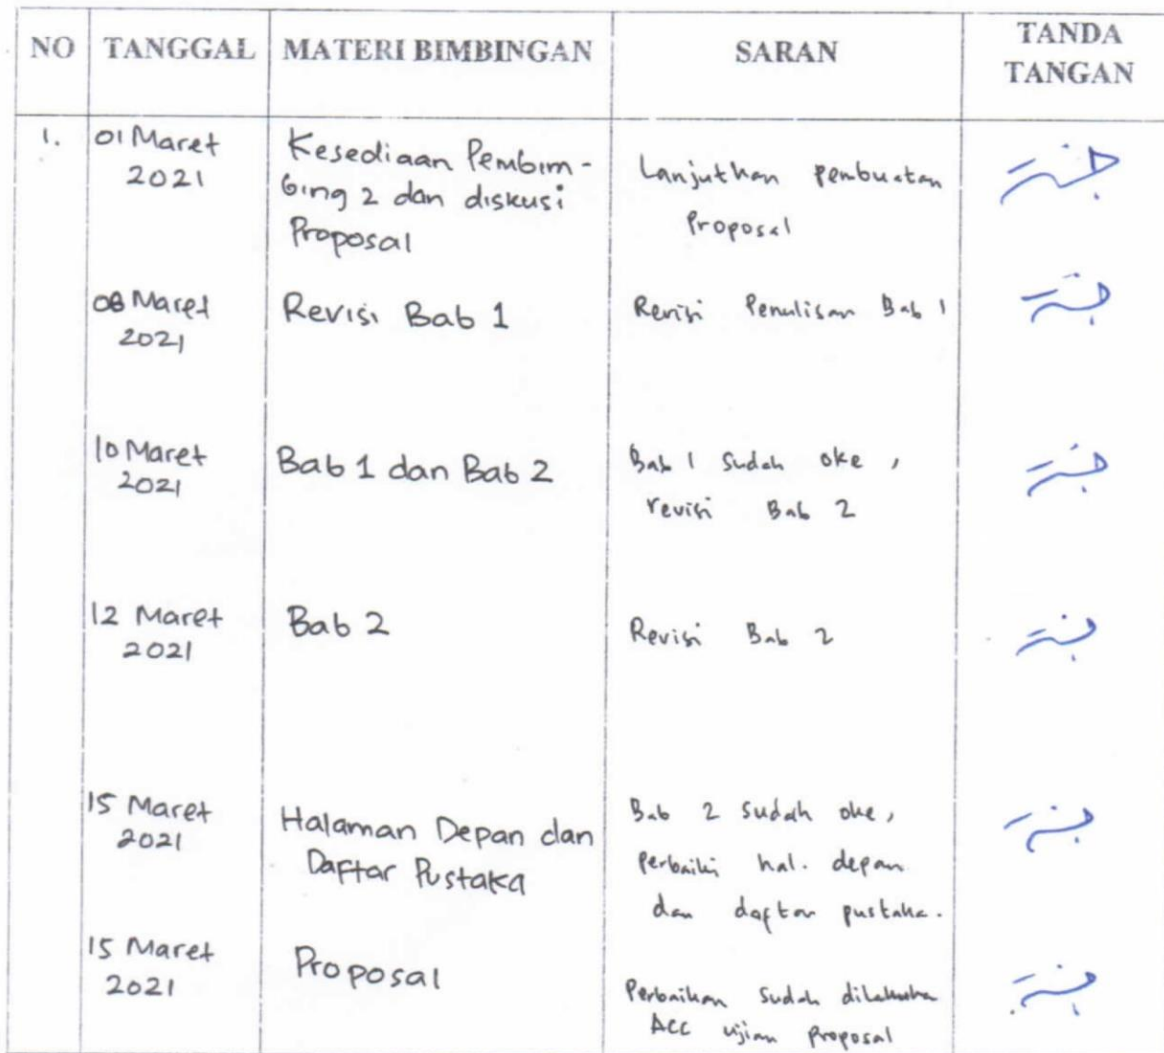 NO TANGGAL MATERI BIMBINGAN SARAN TANDA TANGAN
1. 01 Maret 2021
Kesediaan Pembim-
bing 2 dan diskusi
Proposal
Lanjutkan pembuatan
Proposal
08 Maret
2021
Revisi Bab 1
Revisi Penulisan Bab 1
10 Maret
2021
Bab 1 dan Bab 2
Bab 1 sudah oke,
revisi Bab 2
12 Maret
2021
Bab 2
Revisi Bab 2
15 Maret
2021
Halaman Depan dan
Daftar Pustaka
Bab 2 sudah oke,
perbaiki hal. depan
dan daftar pustaka.
15 Maret
2021
Proposal
Perbaikan sudah dilakukan
ACC ujian proposal